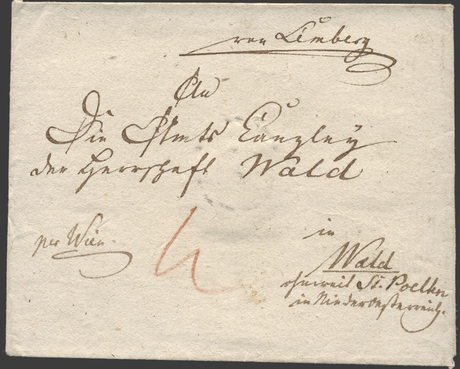 von Lemberg
An
Die Amts Canzley
der Herrschaft Wald
per Wien.
in
Wald
ohnweit St. Poelten
in Niederoesterreich.